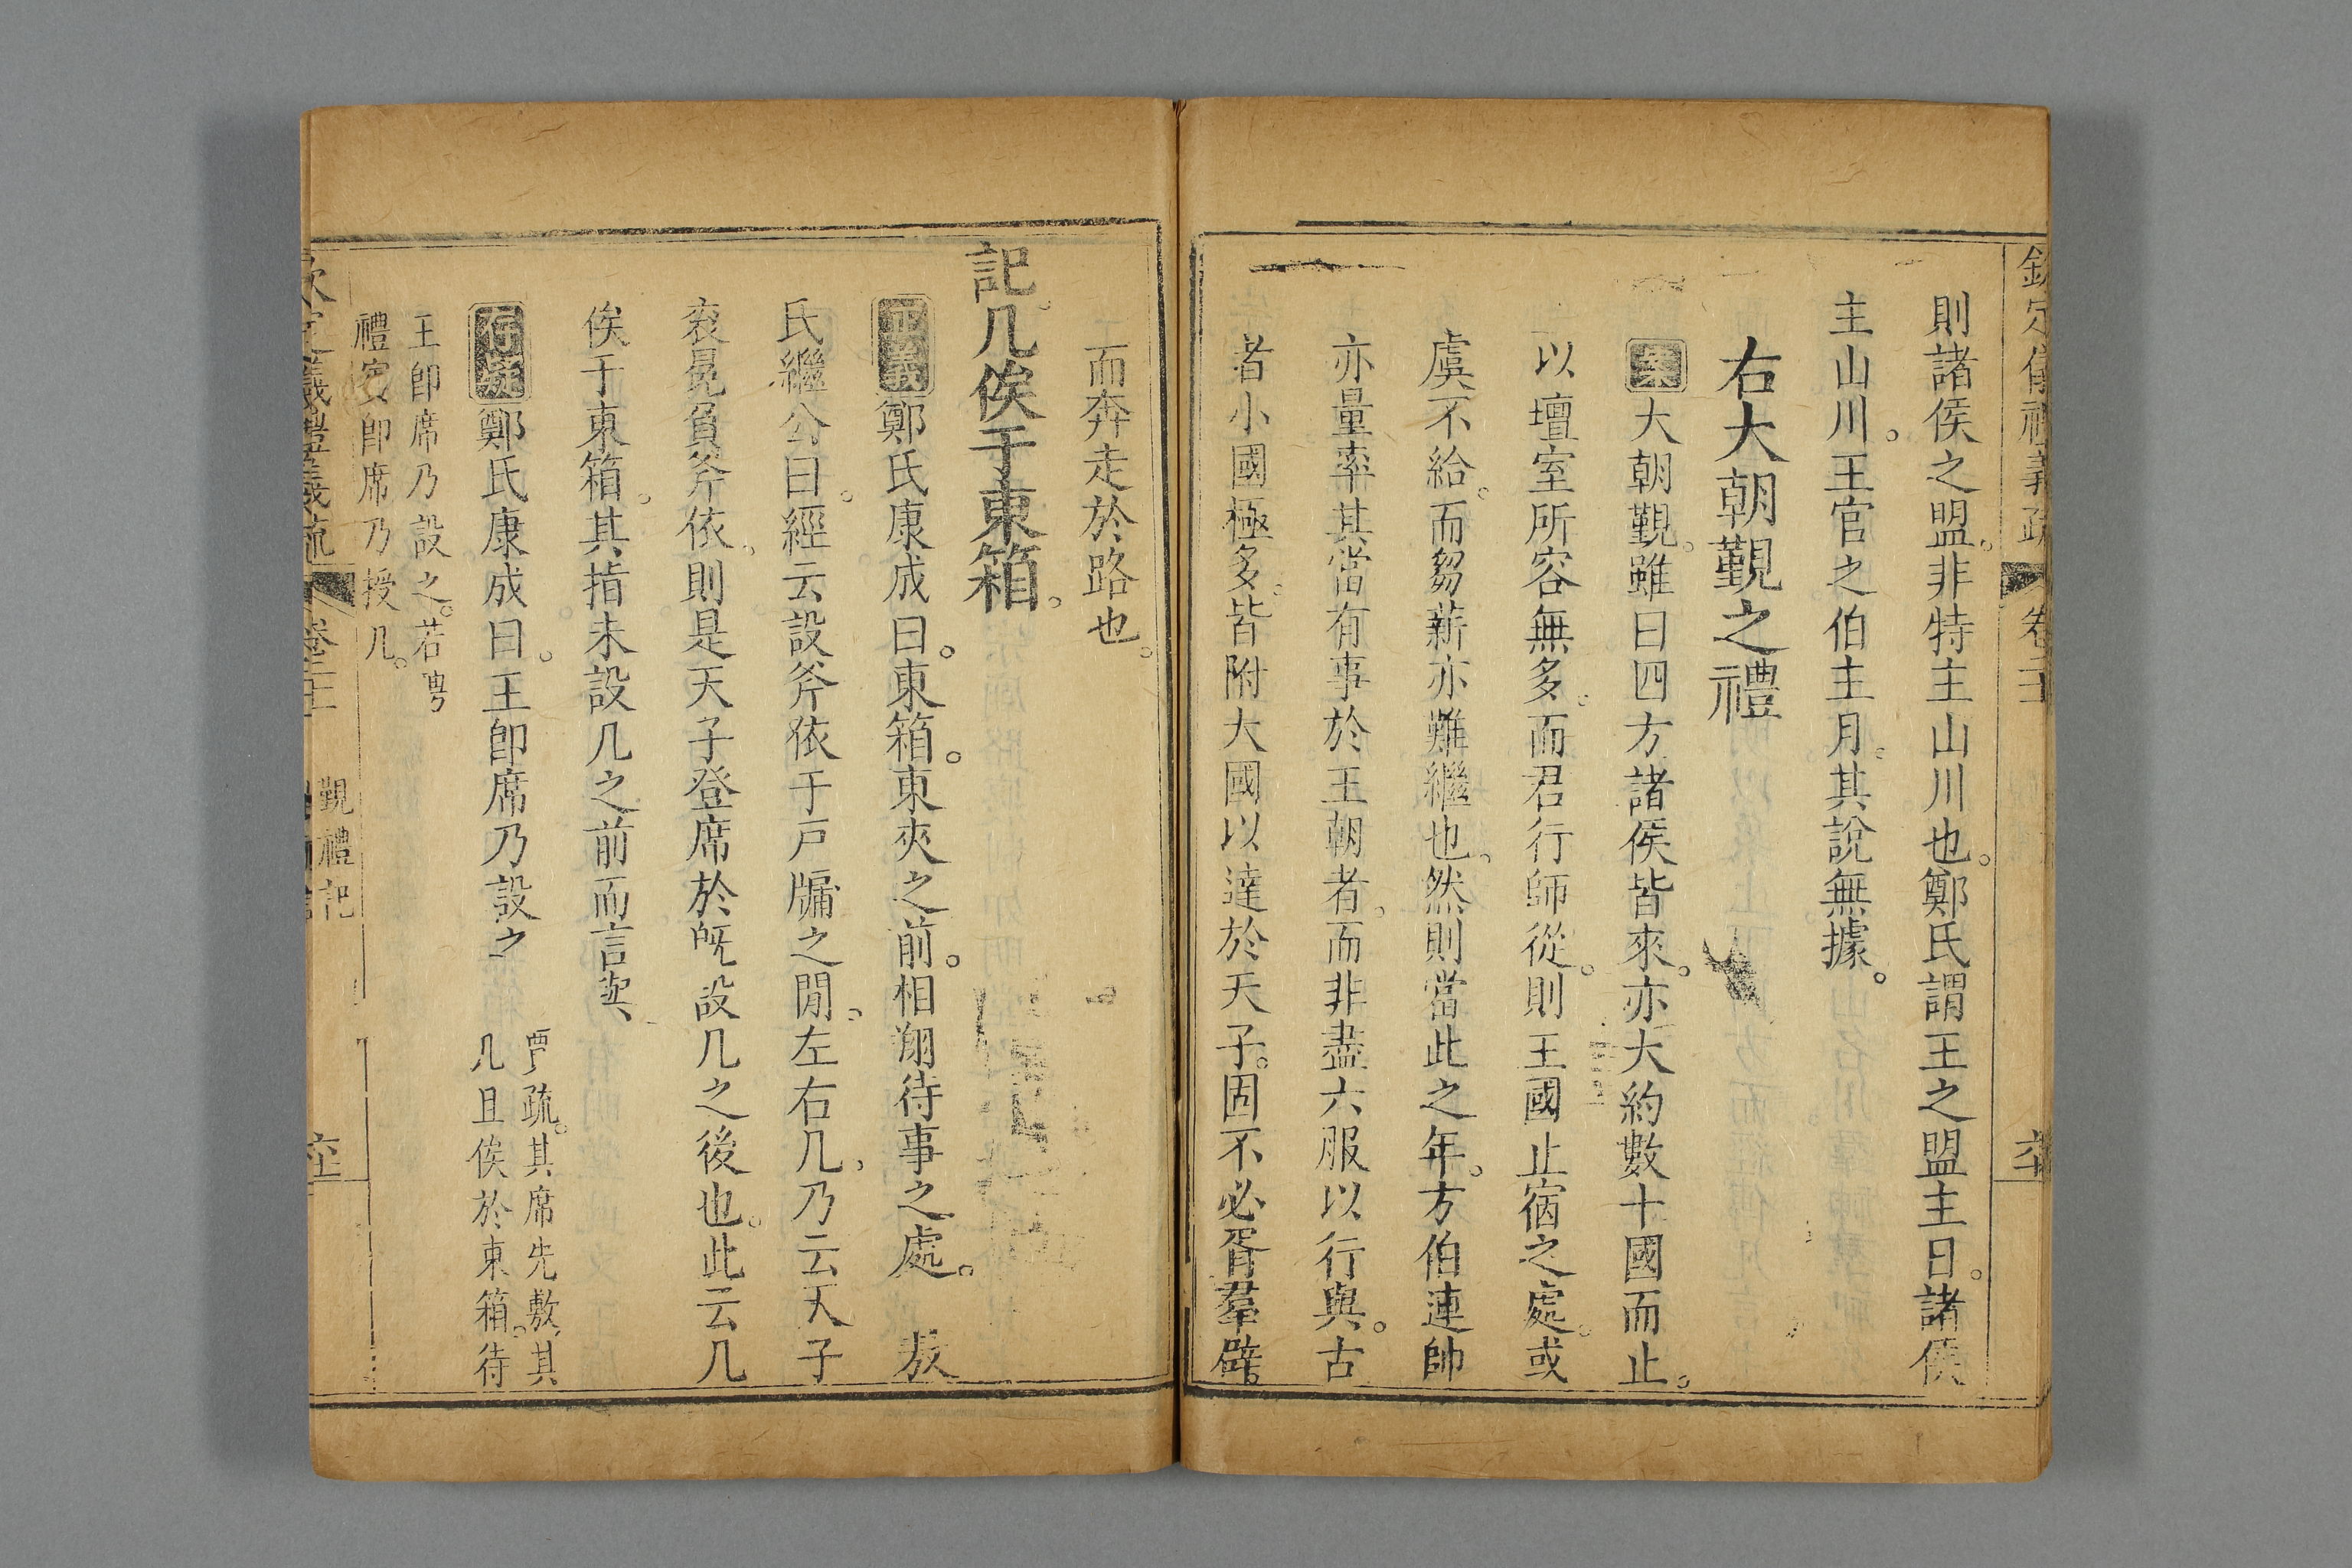 則諸侯之盟。非特主山川也。鄭氏謂王之盟主日。諸侯
主山川。王官之伯主月。其說無據。
右大朝覲之禮
案大朝覲。雖曰四方諸侯皆來。亦大約數十國而止。
以壇室所容無多。而君行師從。則王國止宿之處。或
虞不給。而芻薪亦難繼也。然則當此之年。方伯連帥
亦量率其當有事於王朝者。而非盡六服以行與。古
者小國極多。皆附大國以達於天子。固不必胥羣辟
而奔走於路也。
記。几俟于東箱。
正義鄭氏康成曰。東箱。東夾之前。相翔待事之處。 敖
氏繼公曰。經云設斧依于戶牖之閒。左右几。乃云天子
袞冕負斧依。則是天子登席於旣設几之後也。此云几
俟于東箱。其指未設几之前而言與。
存疑鄭氏康成曰。王卽席乃設之
賈疏。其席先敷其
几且俟於東箱。待
王卽席乃設之。若聘
禮賓卽席乃授几。
覲禮記